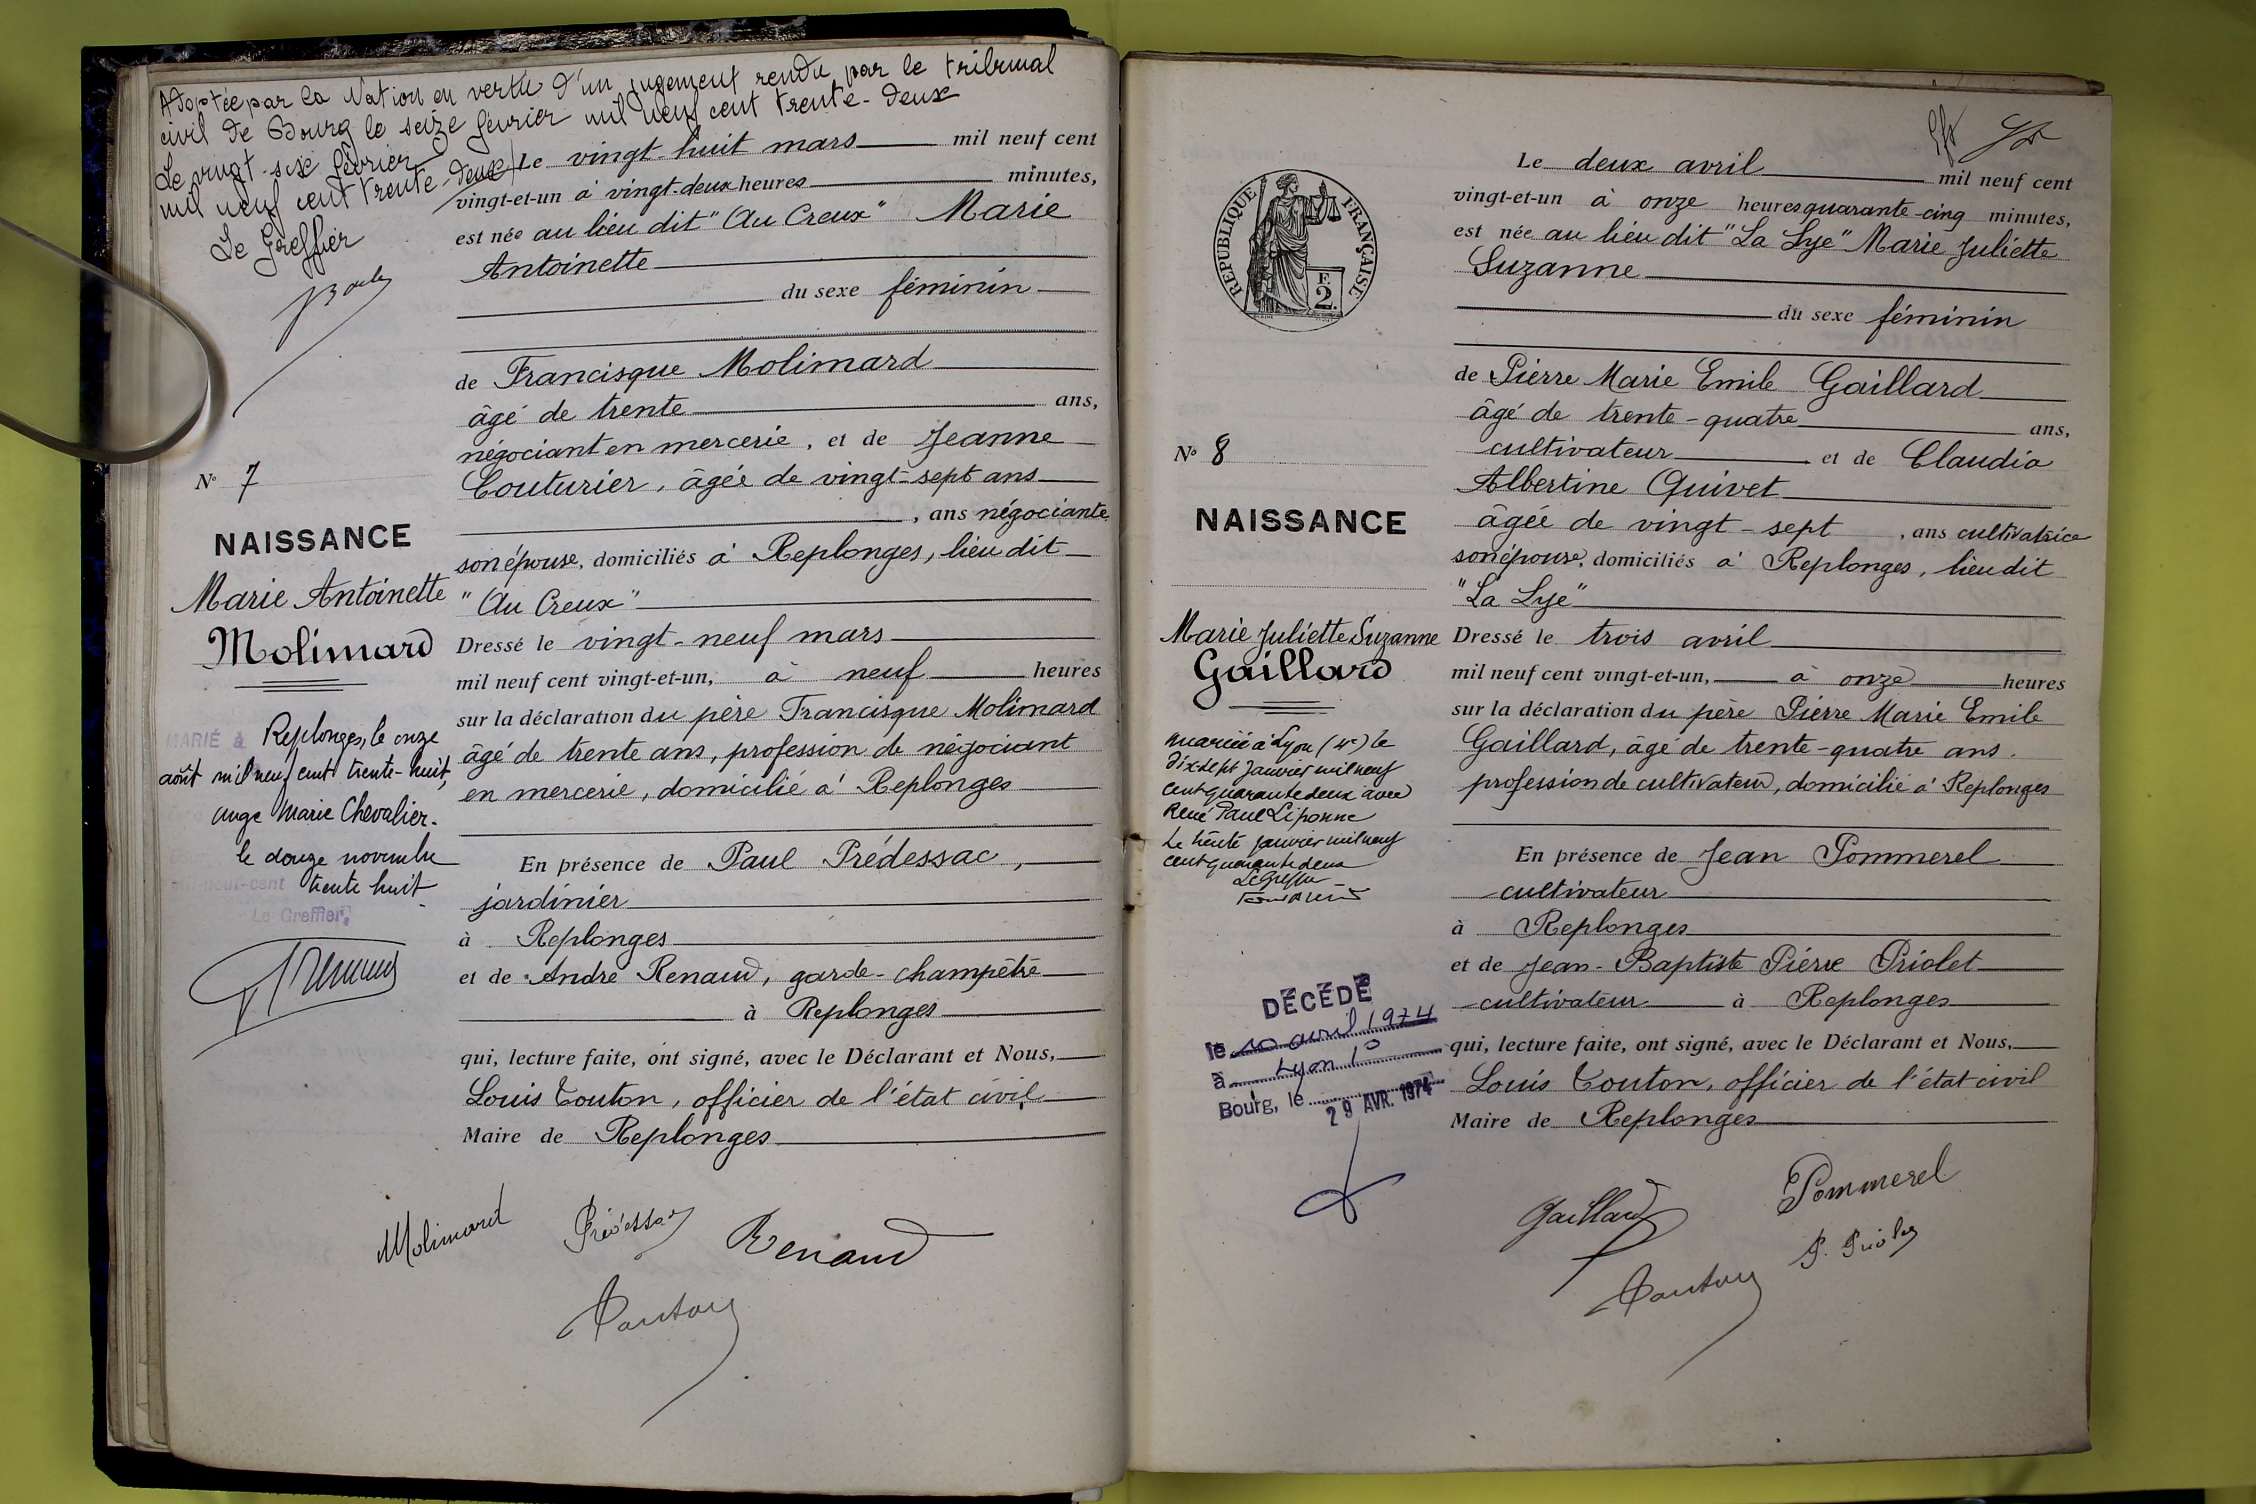 Adoptée par la Nation en vertu d'un jugement rendu par le tribunal
civil de Bourg le seize février mil neuf cent trente-deux
Le vingt-six février
mil neuf cent trente-deux
Le Greffier
N° 7
NAISSANCE
Marie Antoinette
Molimard
MARIÉ à Replonges, le onze
août mil neuf cent trente-huit,
Marie Chevalier.
le douze novembre
mil-neuf-cent trente huit
Le Greffier,
Le vingt-huit mars mil neuf cent
vingt-et-un à vingt-deux heures minutes,
est née au lieu dit "Au Creux" Marie
Antoinette
du sexe féminin
de Francisque Molimard
âgé de trente ans,
négociant en mercerie, et de Jeanne
Couturier, âgée de vingt-sept ans
, ans négociante
son épouse, domiciliés à Replonges, lieu dit
"Au Creux"
Dressé le vingt-neuf mars
mil neuf cent vingt-et-un, à neuf heures
sur la déclaration du père Francisque Molimard
âgé de trente ans, profession de négociant
en mercerie, domicilié à Replonges
En présence de Paul Prédessac,
jardinier
à Replonges
et de André Renaud, garde-champêtre
à Replonges
qui, lecture faite, ont signé, avec le Déclarant et Nous,
Louis Touton, officier de l'état civil
Maire de Replonges
Molimard
Renaud
Touton
RÉPUBLIQUE FRANÇAISE
F.
2.
N° 8
NAISSANCE
Marie Juliette Suzanne
Gaillard
mariée à Lyon (4e) le
dix sept janvier mil neuf
cent quarante deux avec
René Paul
Le trente janvier mil neuf
cent quarante deux
Le Greffier
DÉCÉDÉ
le 10 avril 1974
à Lyon 1°
Bourg, le 29 AVR. 1974
Le deux avril mil neuf cent
vingt-et-un à onze heures quarante-cinq minutes,
est née au lieu dit "La Lye" Marie Juliette
Suzanne
du sexe féminin
de Pierre Marie Emile Gaillard
âgé de trente-quatre ans,
cultivateur et de Claudia
Albertine Quivet
âgée de vingt-sept , ans cultivatrice
son épouse, domiciliés à Replonges, lieu dit
"La Lye"
Dressé le trois avril
mil neuf cent vingt-et-un, à onze heures
sur la déclaration du père Pierre Marie Emile
Gaillard, âgé de trente-quatre ans.
profession de cultivateur, domicilié à Replonges
En présence de Jean Pommerel
cultivateur
à Replonges
et de Jean-Baptiste Pierre Priolet
cultivateur à Replonges
qui, lecture faite, ont signé, avec le Déclarant et Nous,
Louis Touton, officier de l'état civil
Maire de Replonges
Gaillard
Pommerel
Touton